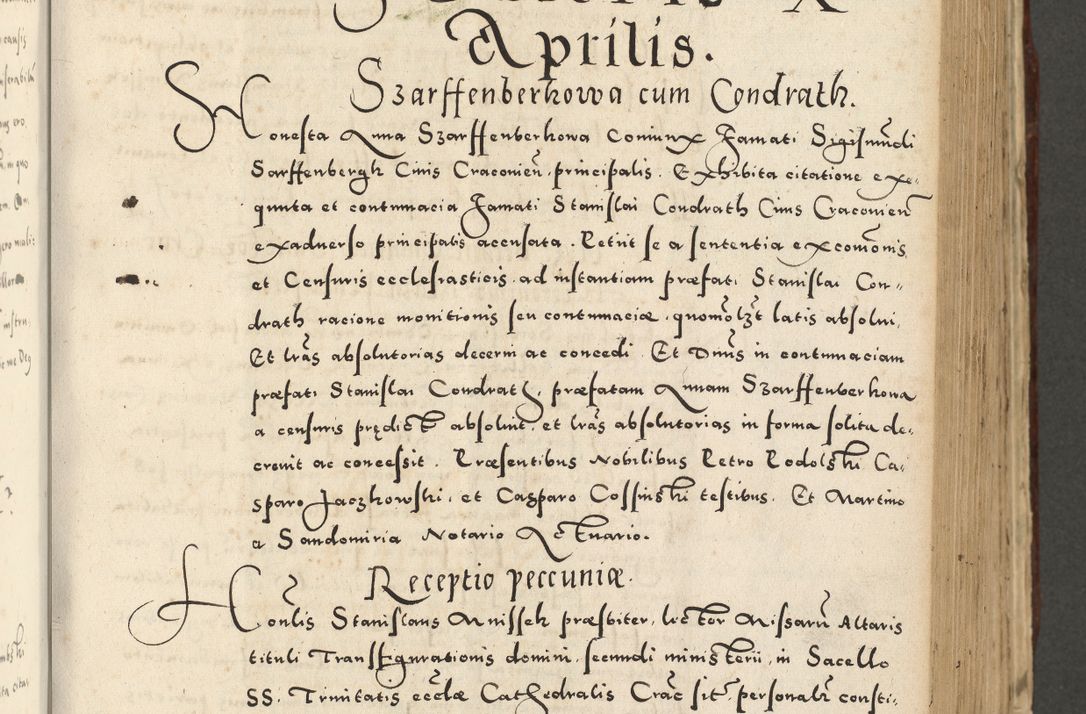 Aprilis.
Szarffenberkowa cum Condrath.
Honesta Anna Szarffenberkowa Coniunx Famati Sigismūdi
Sarffenbergk Civis Cracovieñ. principalis. Exhibita citatione exe-
quuta et contumacia Famati Stanislai Condrath Civis Cracovieñ
exadverso principalis accusata. Petiit se a sententia excōmōnis
et Censuris ecclesiasticis ad instantiam præfati Stanislai Con-
drath racione monitionis seu contumaciæ. quomōlȝt latis absolvi,
Et lrãs absolutorias decerni ac concedi. Et Dnũs in contumaciam
præfati Stanislai Condrath, præfatam Annam Szarffenberkowa
a censuris prędict absolvit. et lrãs absolutorias in forma solita de-
crevit ac concessit. Præsentibus Nobilibus Petro Podolski Ca-
sparo Jaczkowski, et Casparo Cossinski testibus. Et Martino
a Sandomiria Notario Actuario.
Receptio peccuniæ.
Honlis Stanislaus Mnissek præsbiter, lector Missarũ Altaris
tituli Transfigurationis domini, secundi ministerii, in Sacello
SS. Trinitatis eccłæ Cathedralis Crac̃ sit̃, personalr̃ consti-